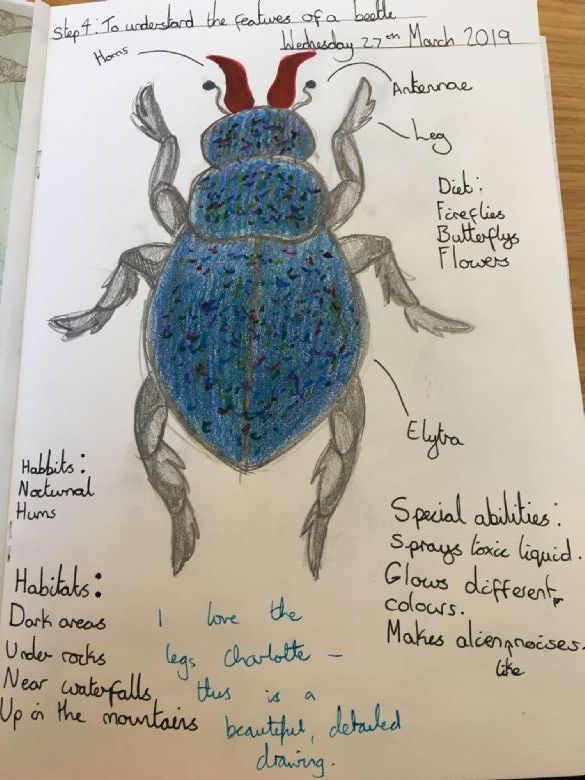 Step 4: To understand the features of a beetle
Wednesday 27th March 2019
Horns
Antennae
Leg
Diet:
Fireflies
Butterflys
Flowers
Elytra
Habbits:
Nocturnal
Hums
Special abilities:
Sprays toxic liquid.
Glows different
colours.
Makes alien noises.
like
Habitats:
Dark areas
Under rocks
Near waterfalls
Up in the mountains
I love the
legs Charlotte –
this is a
beautiful, detailed
drawing.